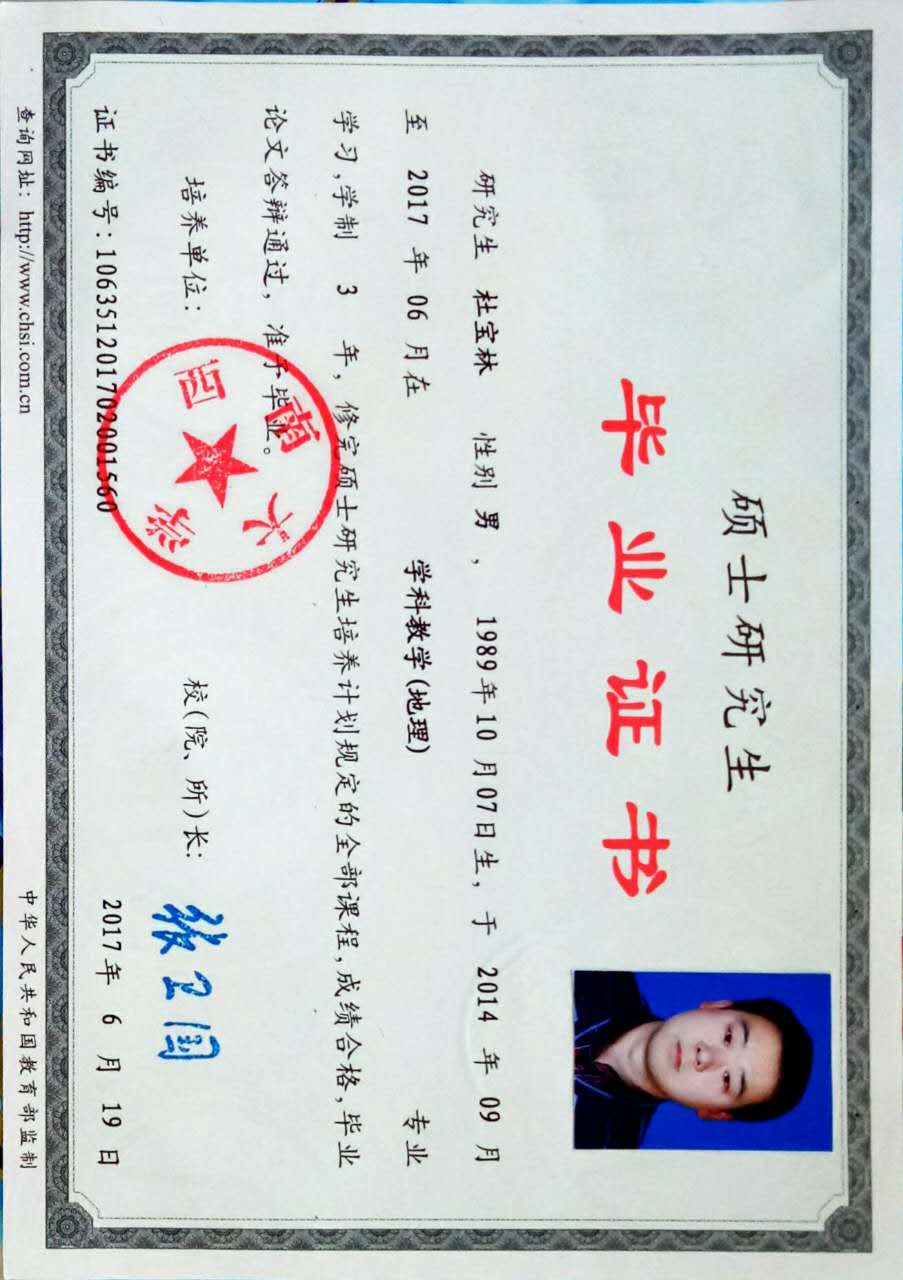 硕士研究生
毕业证书
研究生 杜宝林 性别 男 ， 1989年10月07日生，于 2014 年 09 月
至 2017 年 06 月在 学科教学(地理) 专业
学习，学制 3 年，修完硕士研究生培养计划规定的全部课程，成绩合格，毕业
论文答辩通过，准予毕业。
培养单位： 校(院、所)长： 张卫国
西南大学
证书编号：106351201702001560 2017年 6 月 19 日
查询网址：http://www.chsi.com.cn 中华人民共和国教育部监制